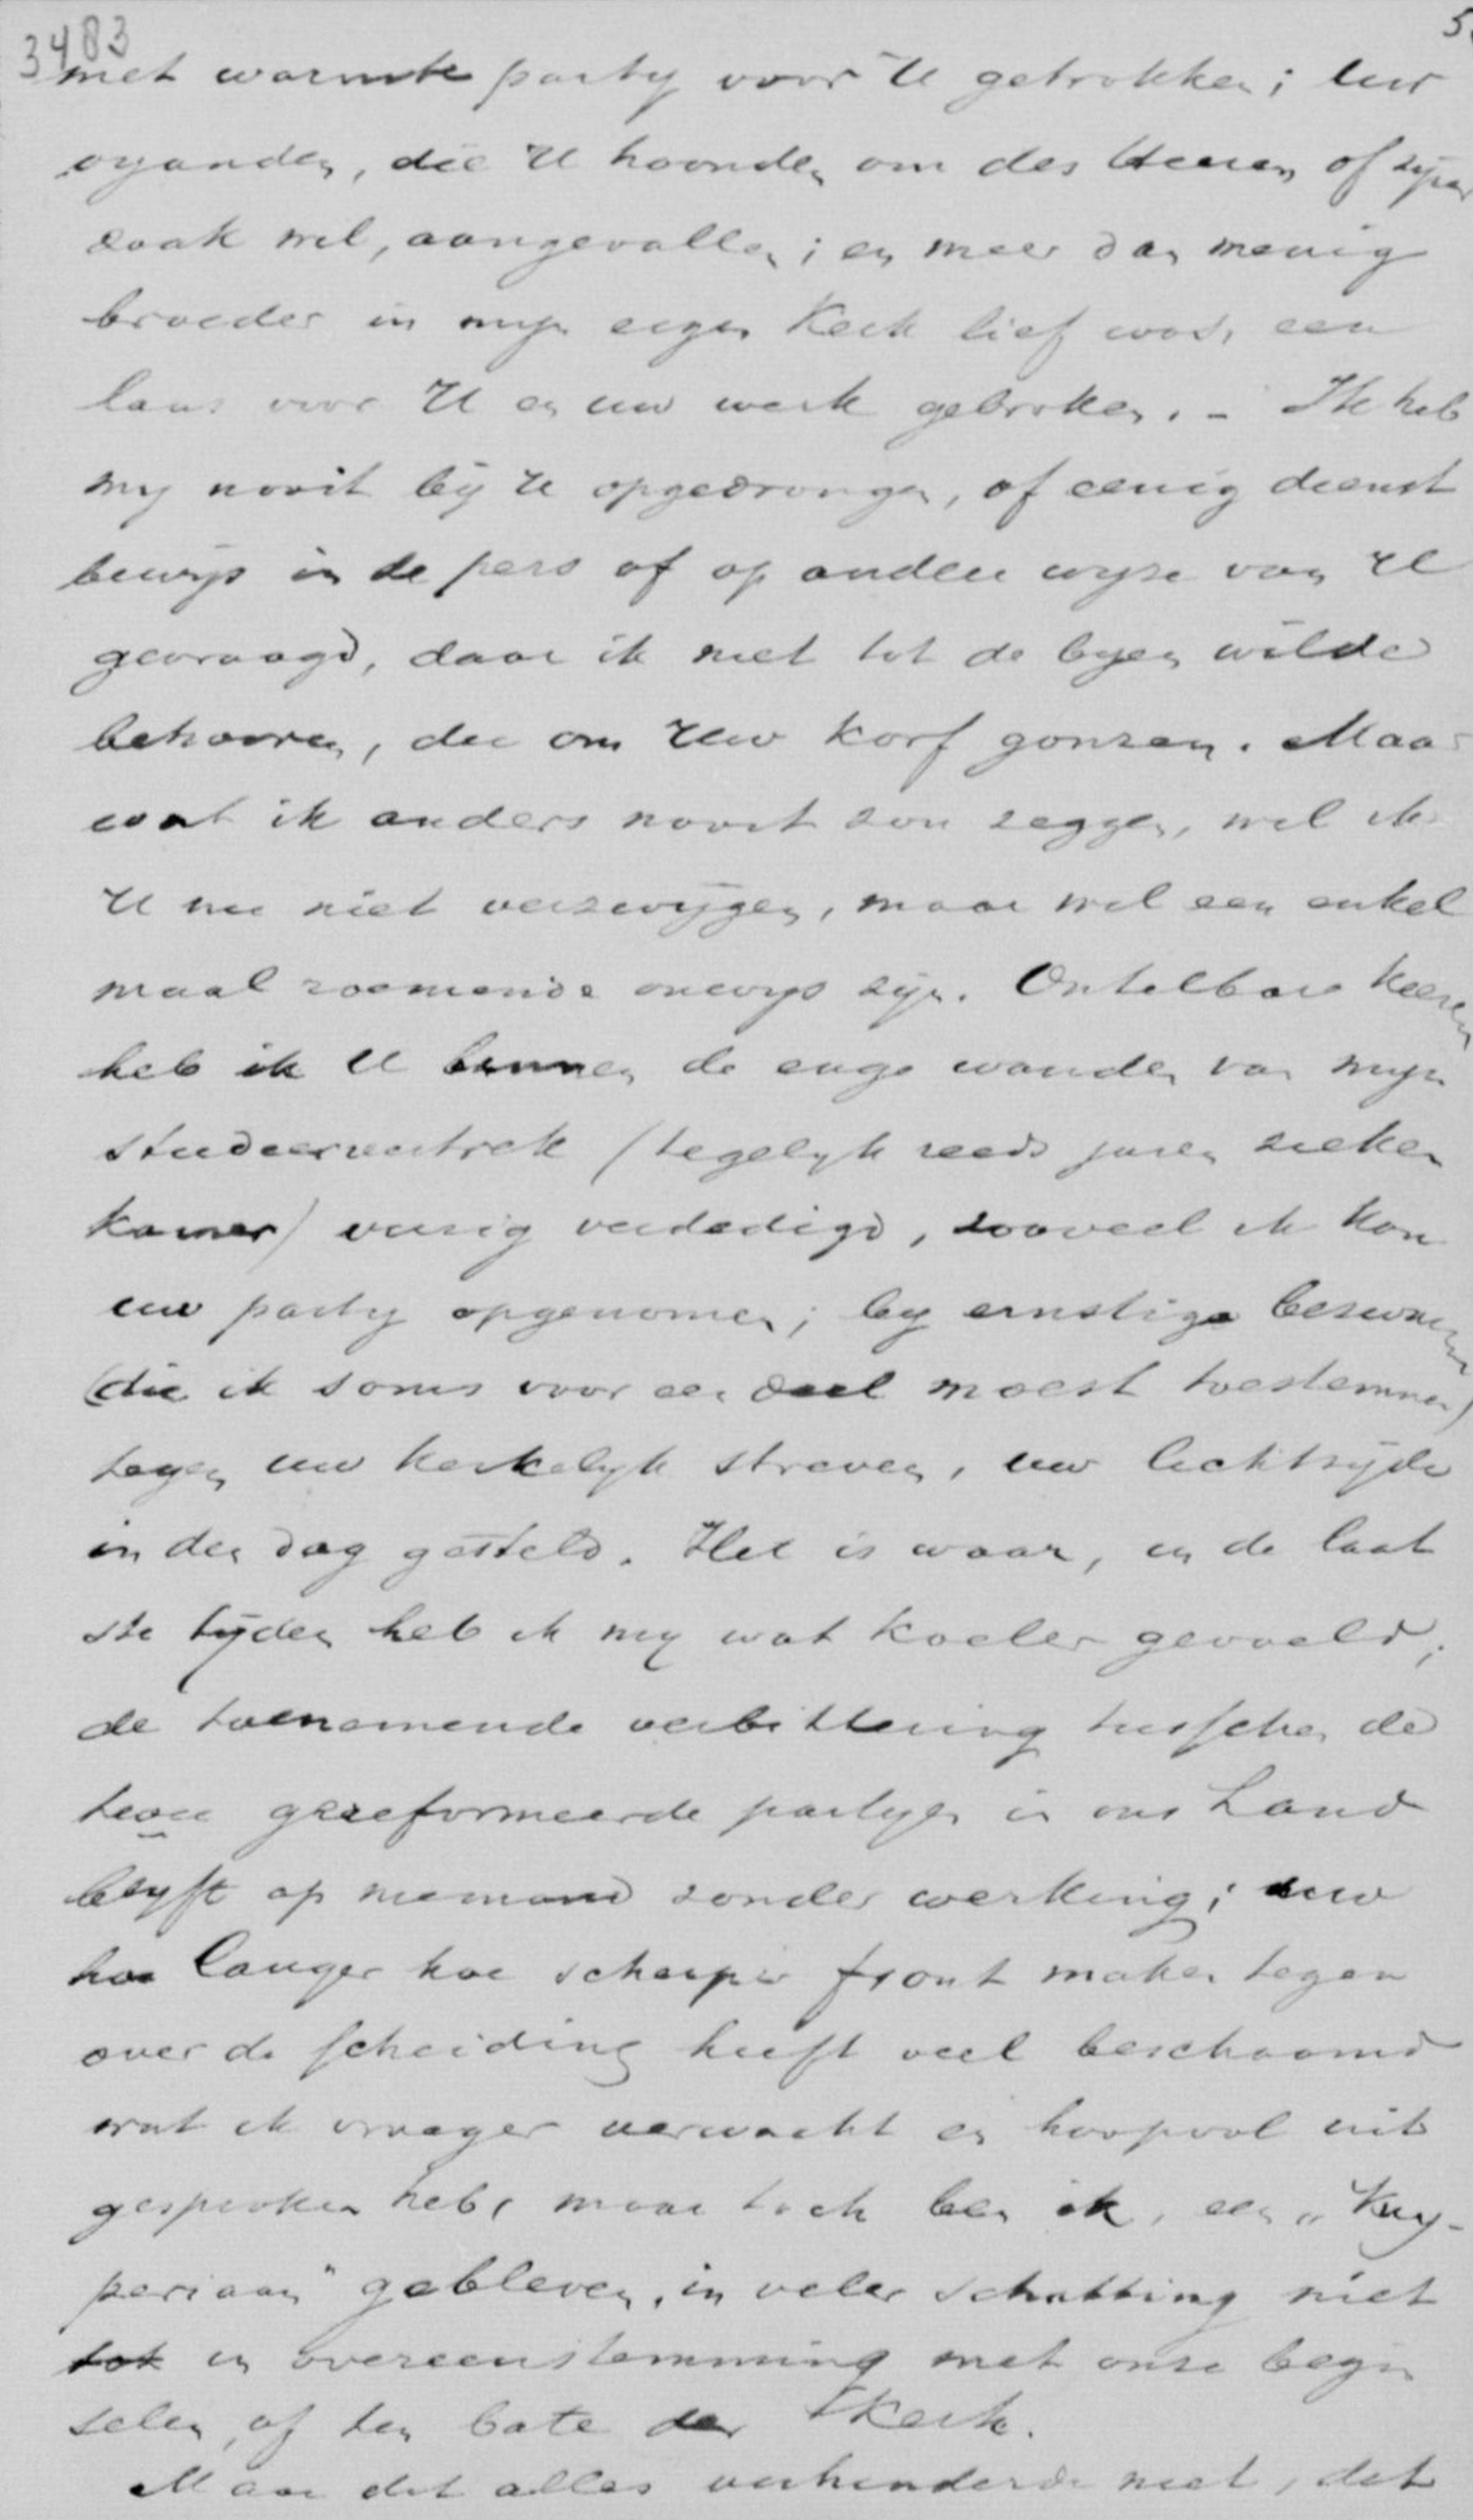 3483 5
met warmte party voor U getrokken; uw
vyanden, die U hoonden om des Heeren of zyner
zaak wil, aangevallen; en meer dan menig
broeder in myn eigen Kerk lief was, een
lans voor U en uw werk gebroken. - Ik heb
my nooit by U opgedrongen, of eenig dienst
bewijs in de pers of op andere wyze van U
gevraagd, daar ik niet tot de byen wilde
behooren, die om Uw korf gonzen. Maar
wat ik anders nooit zou zeggen, wil ik
U nu niet verzwijgen, maar wil een enkel
maal roemende onwys zijn. Ontelbare keeren
heb ik U binnen de enge wanden van myn
studeervertrek (tegelyk reeds jaren zieken
kamer) vurig verdedigd, zooveel ik kon
uw party opgenomen; by ernstige bezwaren
(die ik soms voor een deel moest toestemmen)
tegen uw kerkelyk streven, uw lichtzijde
in den dag gesteld. Het is waar, in de laat
ste tyden heb ik my wat koeler gevoeld;
de toenemende verbittering tusschen de
twee gereformeerde partyen in ons Land
blyft op niemand zonder werking; uw
hoe langer hoe scherper front maken tegen
over de scheiding heeft veel beschaamd
wat ik vroeger verwacht en hoopvol uit
gesproken heb, maar toch ben ik, een „Kuy-
periaan" gebleven, in veler schatting niet
tot in overeenstemming met onze begin
selen, of ten bate der Kerk.
Maar dit alles verhinderde niet, dat